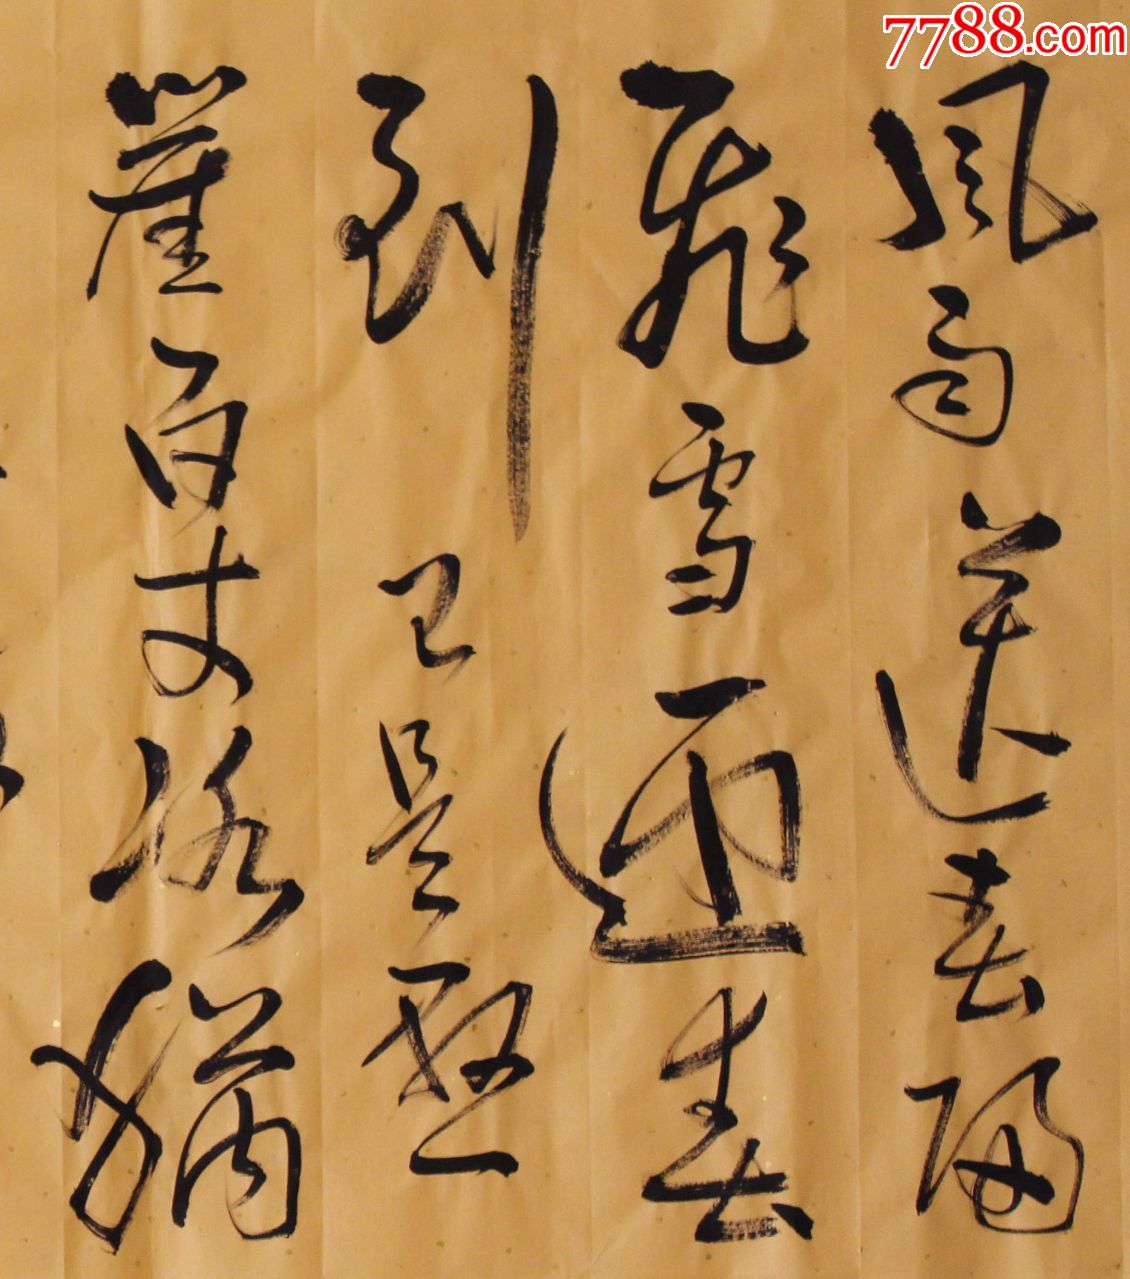 7788.com
风雨送春归
飞雪迎春
到 已是悬
崖百丈冰犹